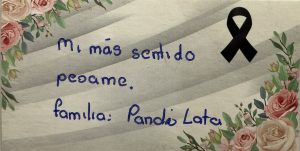 Mi más sentido
pesame.
familia: Pando Lata